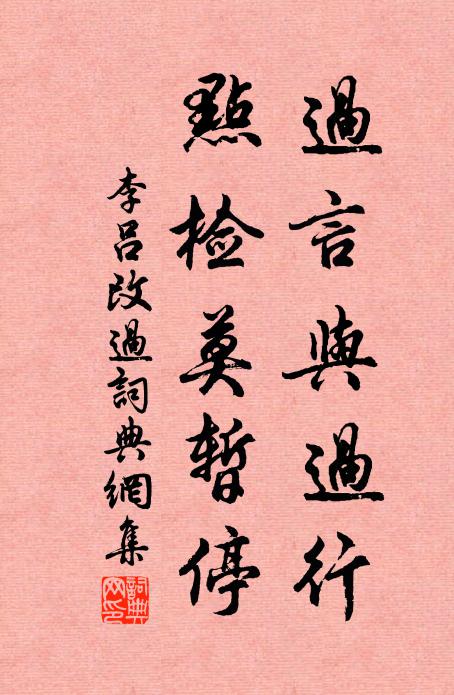 過言與過行
點檢莫暫停
李呂改過詞典網集
詞典網印